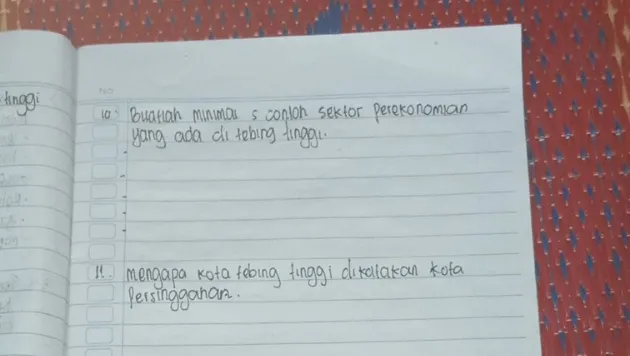 tinggi
No
10. Buatlah minimal 5 contoh sektor Perekonomian
yang ada di tebing tinggi.
-
-
-
-
11. mengapa kota tebing tinggi dikatakan kota
Persinggahan.